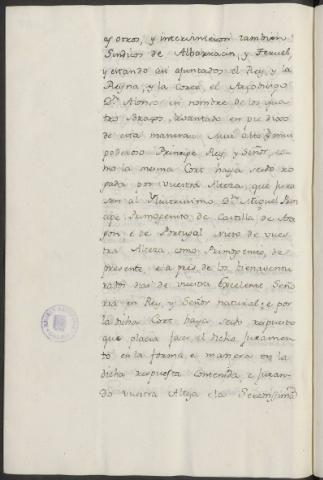 es otros, y intervinieron tambien
Sindicos de Albarracin, y Teruel,
y estando asi ajuntados el Rey, y la
Reyna, y la Corte, el Arzobispo
Dn. Alonso en nombre de los qua-
tro Brazos, levantado en pie dixo
de esta manera: Mui alto, è mui
poderoso Principe Rey, y Señor, co-
mo la misma Cort haya sedo ro
gada por vuestra Alteza, que jura
sen al Illustrisimo Dn. Miguel Prin
cipe Primogenito de Castilla de Ara
gon è de Portugal Nieto de vues-
tra Alteza como Primogenito, de
presente, è a pres de los bienaventu
rados dias de vuestra Excelente Seño
ria en Rey, y Señor natural; e por
la dicha Cort haya sedo respuesto
que placia facer el dicho juramen-
to en la forma, e manera en la
dicha respuesta contenida, e juran-
do vuestra Alteza e la Serenissima